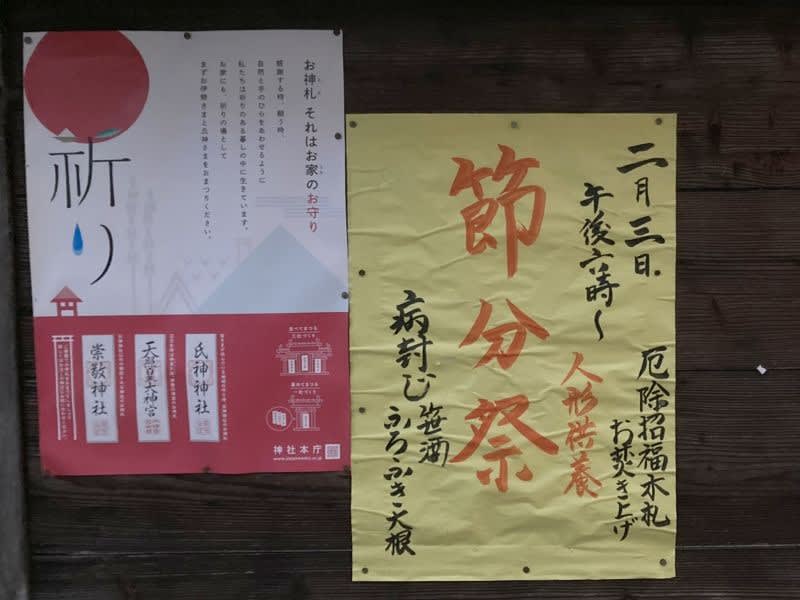 お神札 それはお家のお守り
感謝する時、願う時、
自然と手のひらをあわせるように
私たちは祈りのある暮しの中に生きています。
お家にも、祈りの場として
まずお伊勢さまと氏神さまをおまつりください。
祈り
氏神神社
天照皇大神宮
崇敬神社
並べてまつる
重ねてまつる
神社本庁
二月三日
午後六時〜
厄除招福木札
お焚き上げ
人形供養
節分祭
病封じ
笹酒
ふろふき大根